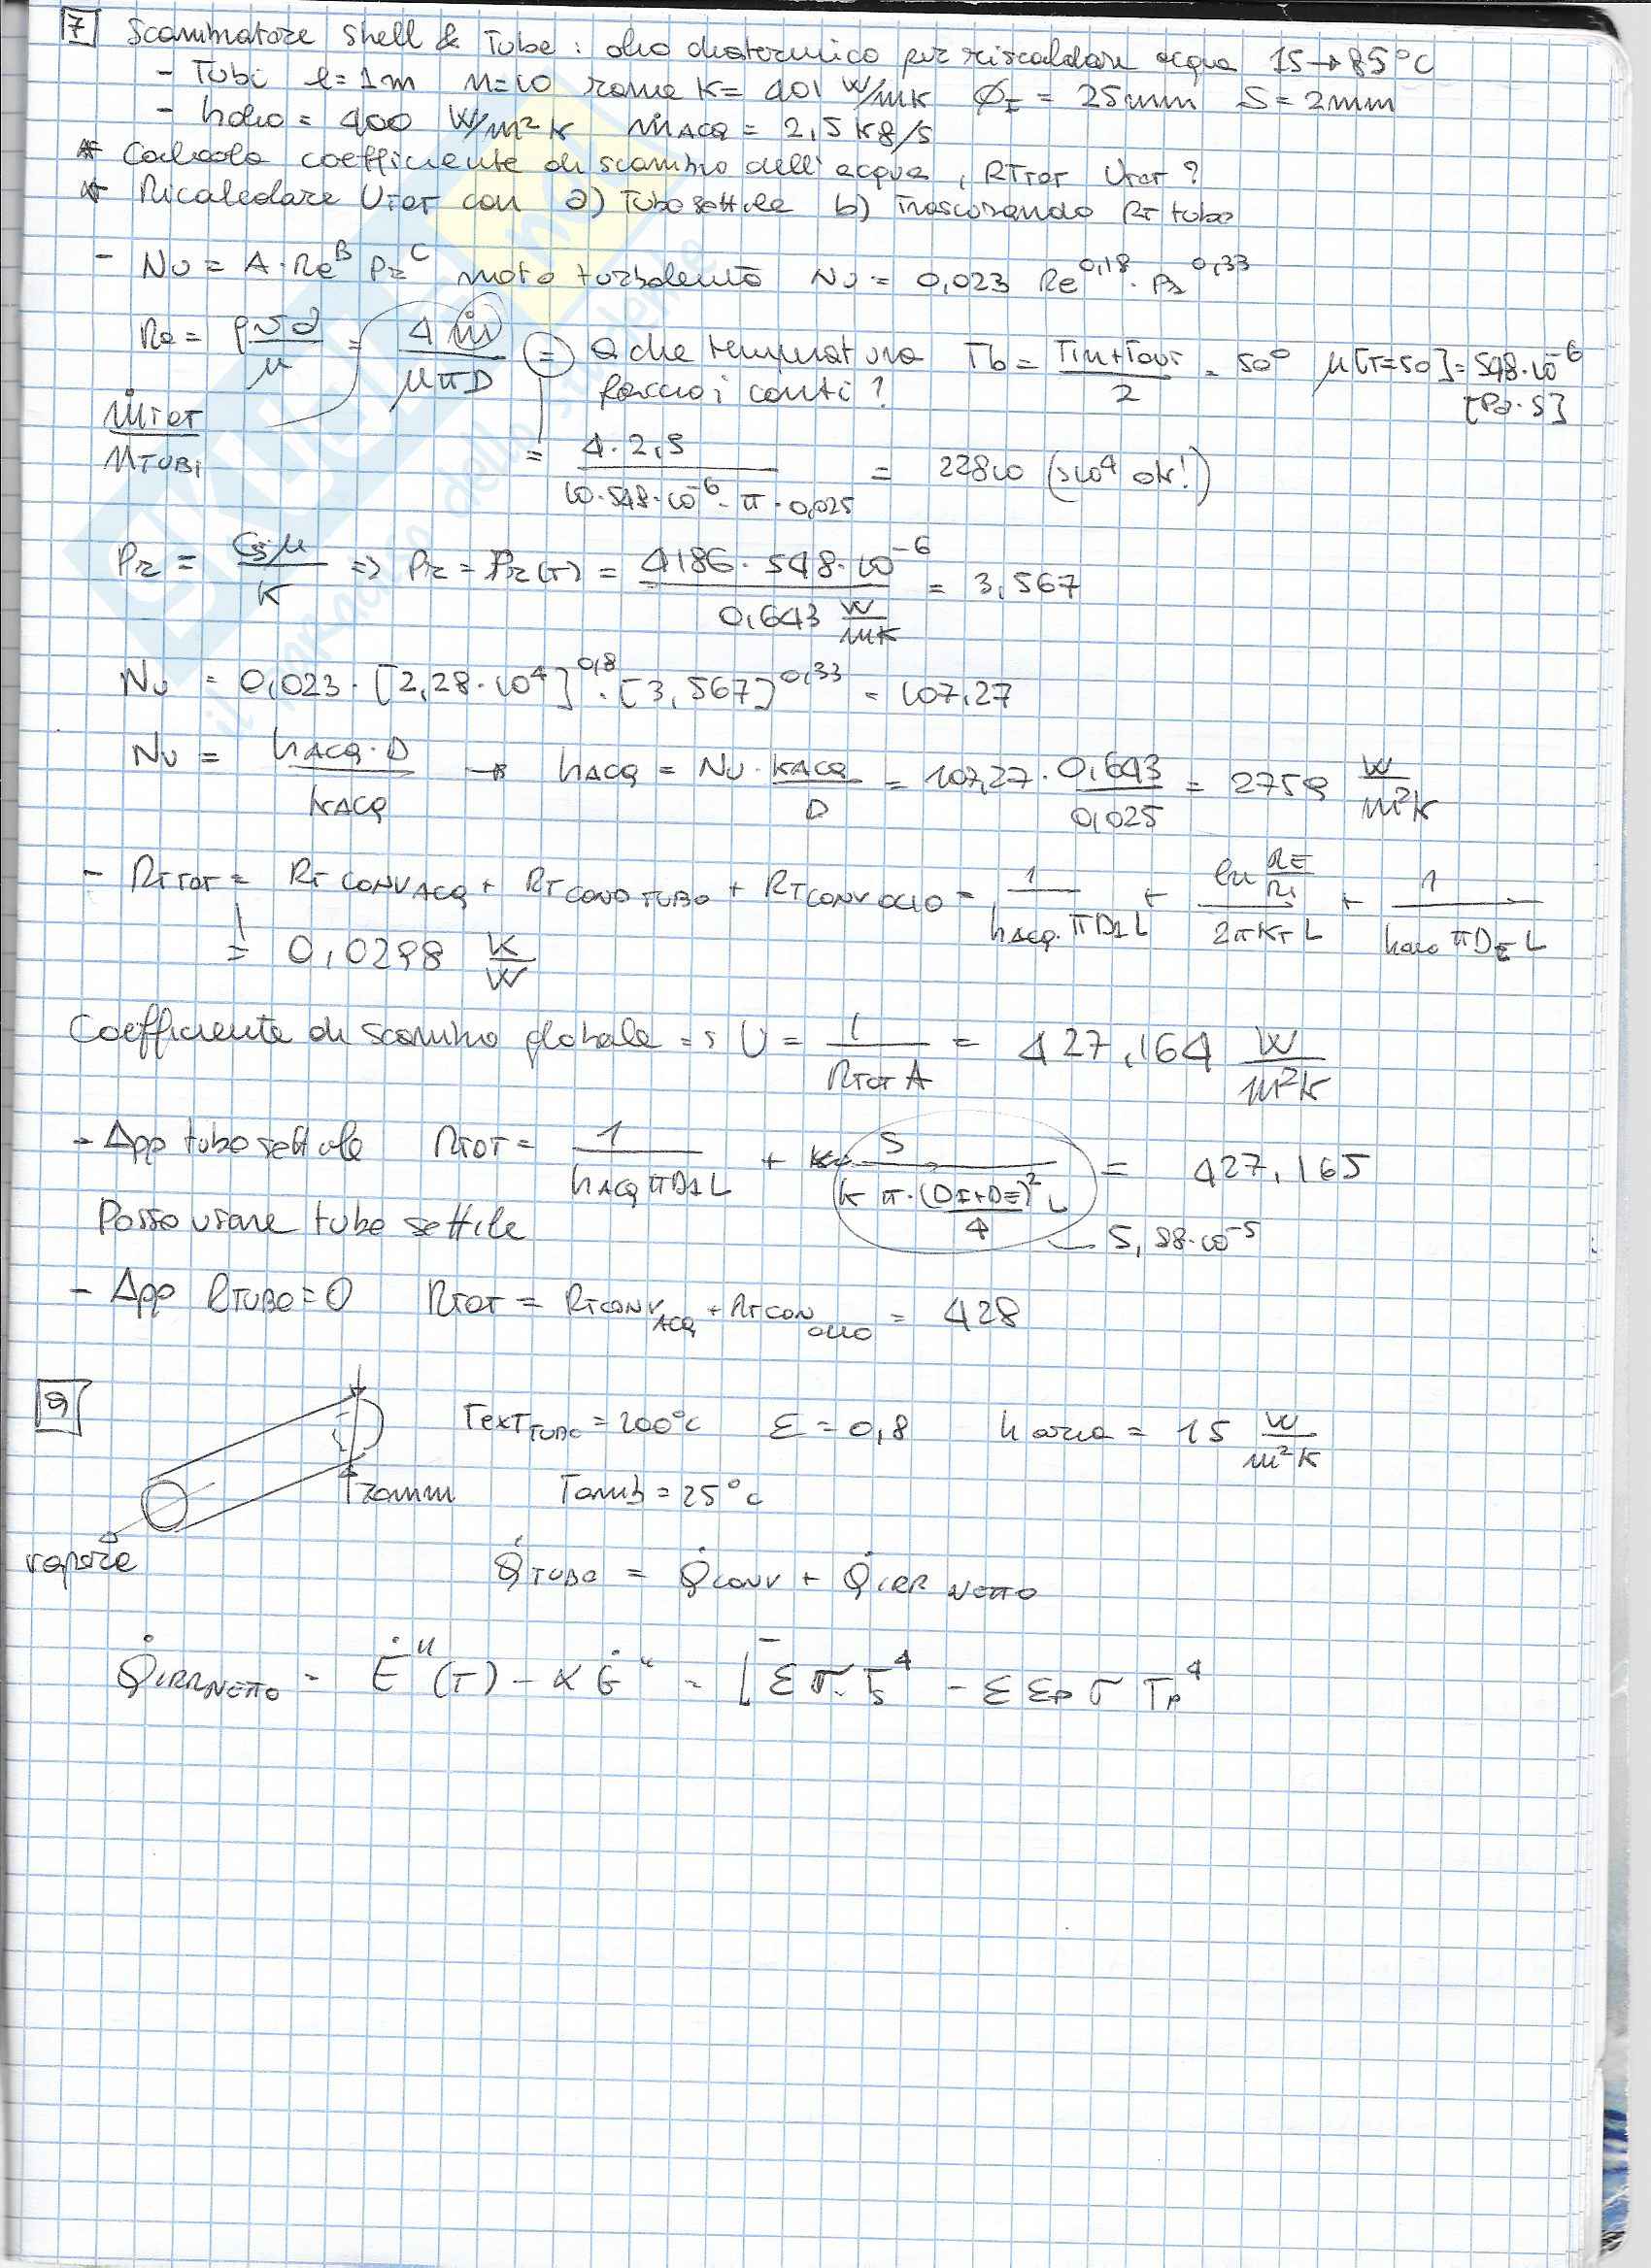 7 Scambiatore Shell & Tube: olio diatermico per riscaldare acqua 15→85°C
- Tubi l=1m n=10 rame K=401 W/mK ØI = 25mm S=2mm
- holio = 400 W/m²K ṁACQ = 2,5 Kg/s
* Calcola coefficiente di scambio dell'acqua, RTTOT UTOT?
* Ricalcolare UTOT con a) Tubo sottile b) Trascurando RT tubo
- Nu = A·Re^B Pr^C moto turbolento Nu = 0,023 Re^0,18 · Pr^0,33
Re = ρvd/μ = 4ṁ/μπD = a che temperatura faccio i conti? Tb = TIN+TOUT/2 = 50° μ[T=50]=548·10^-6 [Pa·S]
ṁTOT/nTUBI
= 4·2,5/10·548·10^-6·π·0,025 = 22810 (>10^4 ok!)
Pr = Cpμ/K => Pr = Pr(T) = 4186·548·10^-6/0,643 W/mK = 3,567
Nu = 0,023·[2,28·10^4]^0,8·[3,567]^0,33 = 107,27
Nu = hACQ·D/kACQ → hACQ = Nu·kACQ/D = 107,27·0,643/0,025 = 2759 W/m²K
- RTTOT = RTCONVACQ + RTCONDTUBO + RTCONVOLIO = 1/hACQ·πDIL + ln RE/RI/2πKTL + 1/holio πDEL
= 0,0298 K/W
Coefficiente di scambio globale => U = 1/RTOT A = 427,164 W/m²K
- App tubo sottile RTOT = 1/hACQπDIL + S/Kπ·(DI+DE)²/4 L = 427,165
5,98·10^-5
Posso usare tubo sottile
- App RTUBO=0 RTOT = RTCONVACQ + RTCONOLIO = 428
9 TextTUBO=200°C ε=0,8 h aria = 15 W/m²K
70mm Tamb=25°C
vapore
Q̇TUBO = Q̇CONV + Q̇IRR NETTO
Q̇IRRNETTO = Ė"(T) - αĠ" = [εσTs^4 - εεpσTp^4